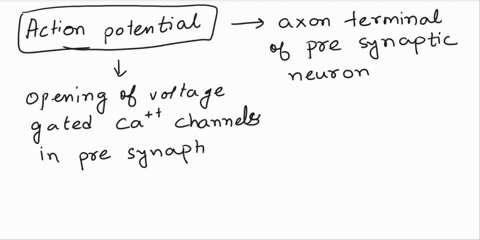 Action potential → axon terminal
of pre synaptic
neuron
↓
opening of voltage
gated Ca++ channels
in pre synaph